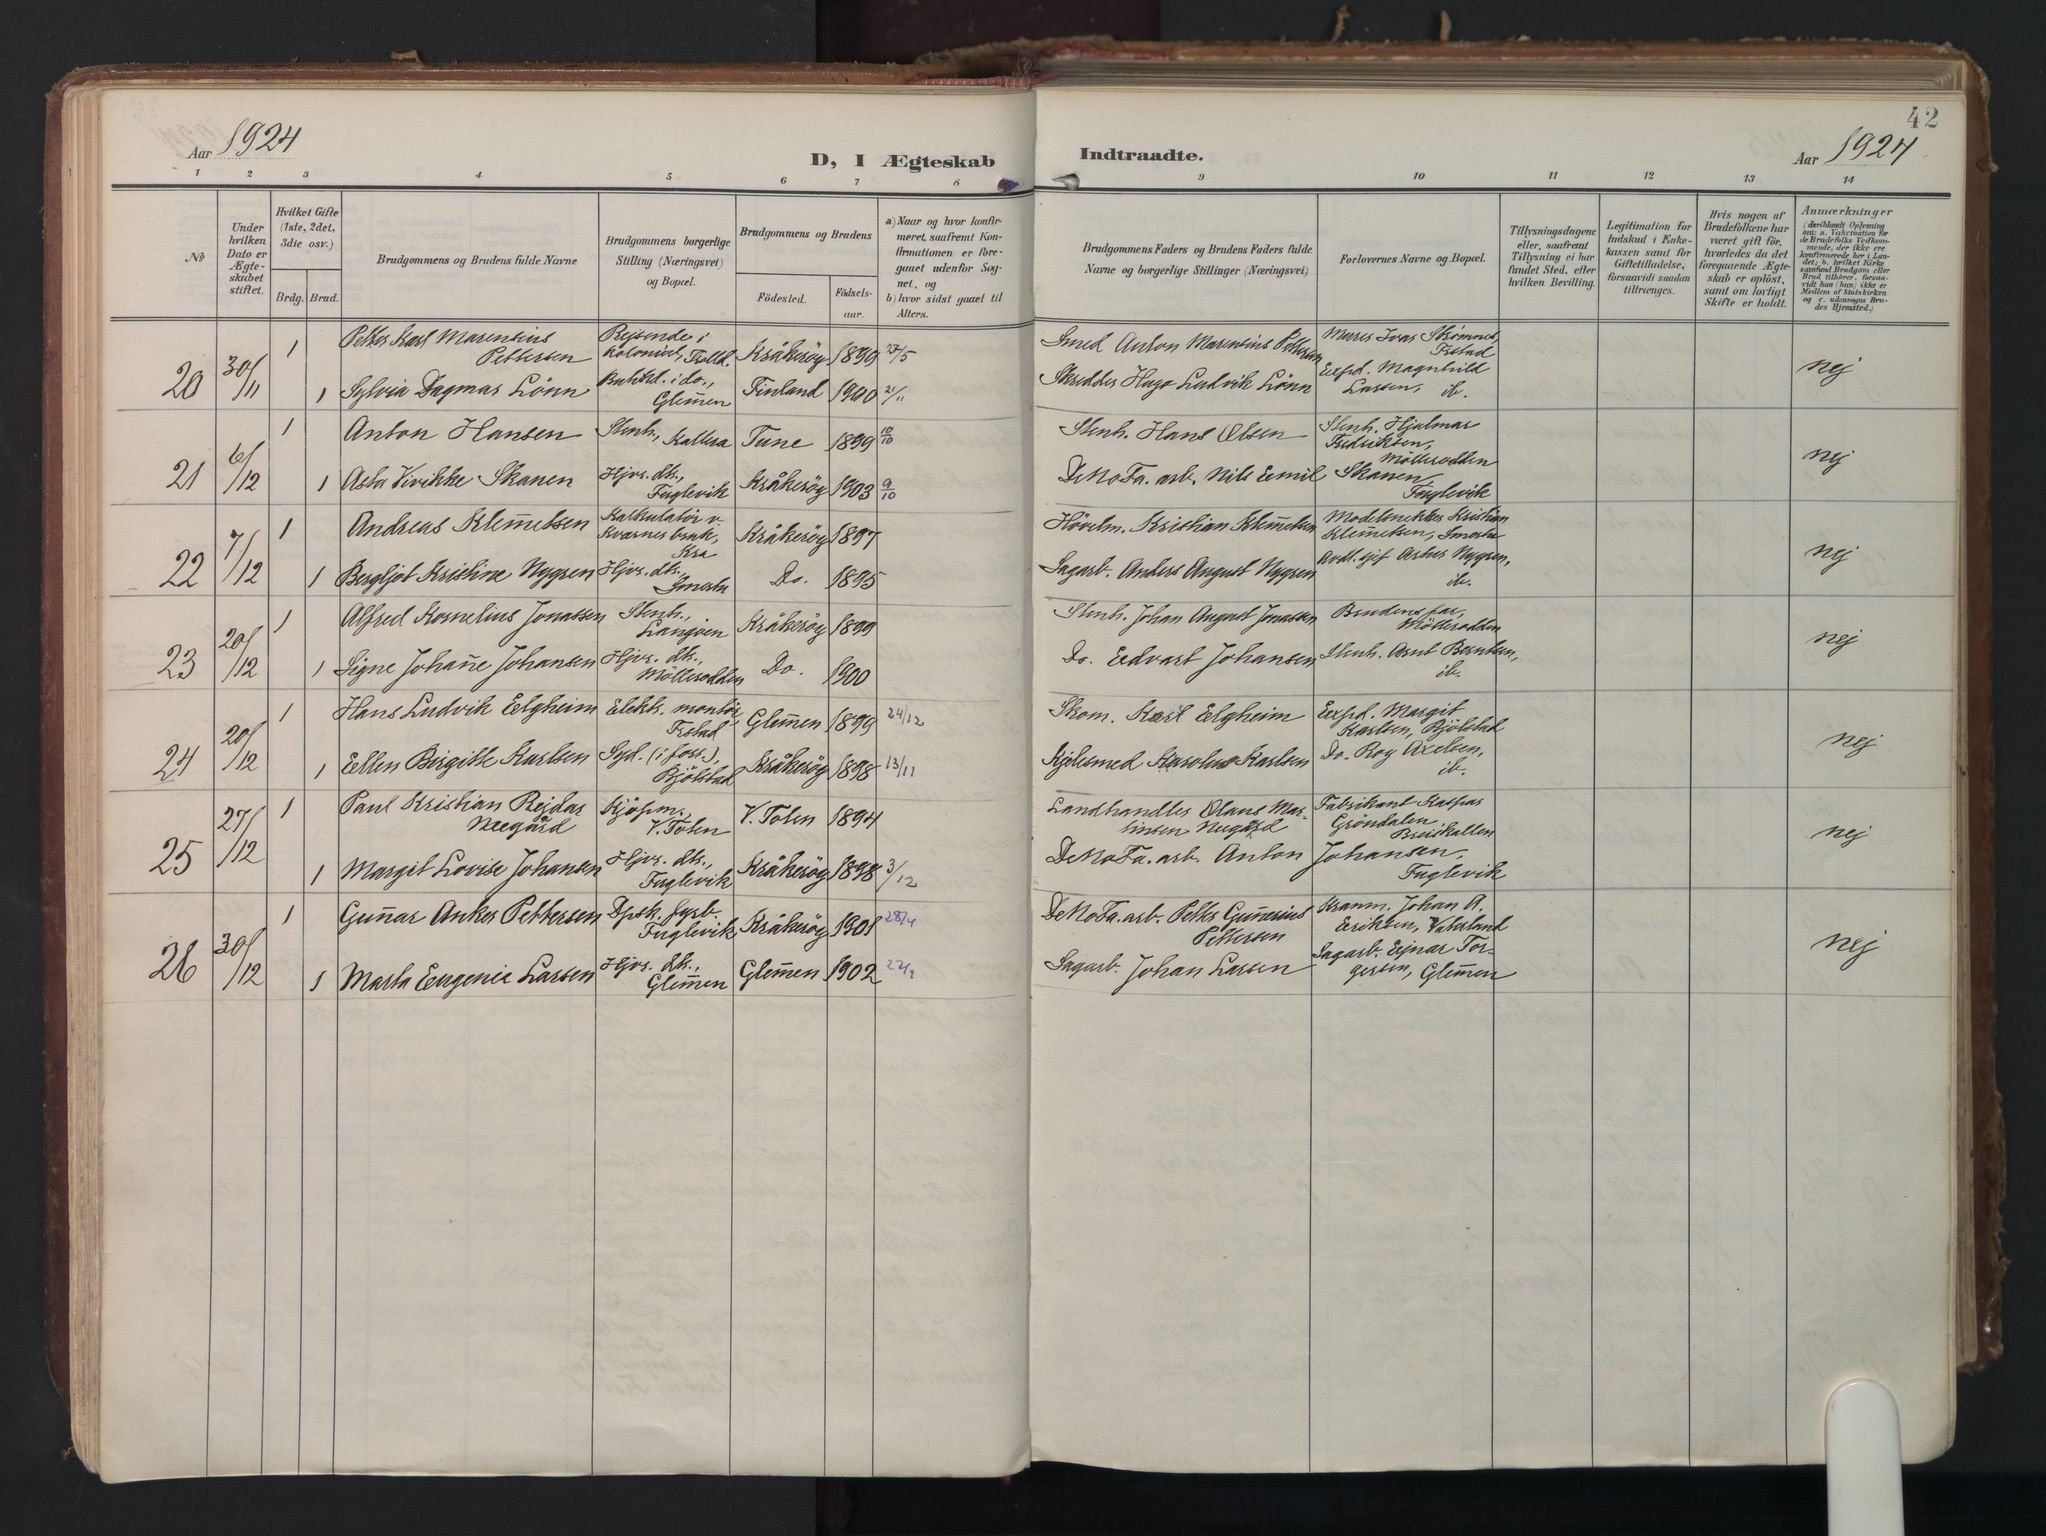 42
Aar 1924
D, I Ægteskab Indtraadte.
Aar 1924
1 2 3 4 5 6 7 8 9 10 11 12 13 14
No
Under hvilken Dato er Ægteskabet stiftet.
Hvilket Gifte (1ste, 2det, 3die osv.)
Brdg. Brud.
Brudgommens og Brudens fulde Navne
Brudgommens borgerlige Stilling (Næringsvei) og Bopæl.
Brudgommens og Brudens
Födested. Födselsaar.
a) Naar og hvor konfirmeret, saafremt Konfirmationen er foregaaet udenfor Sognet, og
b) hvor sidst gaaet til Alters.
Brudgommens Faders og Brudens Faders fulde Navne og borgerlige Stillinger (Næringsvei)
Forlovernes Navne og Bopæl.
Tillysningsdagene eller, saafremt Tillysning ei har fundet Sted, efter hvilken Bevilling.
Legitimation for Indskud i Enkekassen samt for Giftetilladelse, forsaavidt saadan tiltrænges.
Hvis nogen af Brudefolkene har været gift för, hvorledes da det foregaaende Ægteskab er oplöst, samt om lovligt Skifte er holdt.
Anmærkninger (deriblandt Oplysning om: a. Vakcination for de Brudefolks Vedkommende, der ikke ere konfirmerede her i Landet; b. hvilket Kirkesamfund Brudgom eller Brud tilhörer, forsaavidt han (hun) ikke er Medlem af Statskirken og c. udensogns Brudes Hjemsted.)
20 30/11 1 Petter Karl Marensius Pettersen Reisende i kolonial, Kråkeröy 1899 27/5 Smed Anton Marensius Pettersen Ivar Strømnes, Frstad nej
1 Sylvia Dagmar Lönn i do., Glem̄en Finland 1900 21/11 Skredder Hugo Ludvik Lönn Exped. Magnhild Larsen, ib.
21 6/12 1 Anton Hansen Stenh., Kallera Tune 1899 10/10 Stenh. Hans Olsen Stenh. Hjalmar Fredriksen, Möllerodden nej
1 Asta Vivikke Skanen Hjvs. dtr., Fuglevik Kråkeröy 1903 9/10 DeNoFa. arb. Nils Emil Skanen, Fuglevik
22 7/12 1 Andreas Klem̄etsen Kalkulatör v. Kværnes bruk, Kra Kråkeröy 1897 Hövlm. Kristian Klem̄etsen Modelsnekker Kristian Klem̄etsen, Smerta nej
1 Bergljot Kristine Nygren Hjvs. dtr., Smerta Do. 1895 Sagarb. Anders August Nygren Artur Nygren, ib.
23 20/12 1 Alfred Kornelius Jonassen Stenh., Langöen Kråkeröy 1899 Stenh. Johan August Jonassen Brudens far, Möllerodden nej
1 Signe Johan̄e Johansen Hjvs. dtr., Möllerodden Do. 1900 Do. Edvart Johansen Stenh. Arnt Berntsen, ib.
24 20/12 1 Hans Ludvik Elgheim Elektr. montör, Frstad Glem̄en 1899 24/12 Skom. Karl Elgheim Exped. Margit Karlsen, Bjölstad nej
1 Ellen Birgitte Karlsen Syd. (i forr.), Bjölstad Kråkeröy 1898 13/11 Kjelesmed Karolus Karlsen Do. Roy Axelsen, ib.
25 27/12 1 Paul Kristian Rejdar Neegård Kjöpm., V. Toten V. Toten 1894 Landhandler Olaus Martinsen Neegård Fabrikant Kaspar Gröndalen, Breiskallen nej
1 Margit Lovise Johansen Hjvs. dtr., Fuglevik Kråkeröy 1898 3/12 DeNoFa. arb. Anton Johansen, Fuglevik
26 30/12 1 Gun̄ar Anker Pettersen Dpsk. fyrb. Fuglevik Kråkeröy 1901 28/4 DeNoFa. arb. Petter Gun̄erius Pettersen Kranm. Johan A. Eriksen, Vaterland nej
1 Marta Eugenie Larsen Hjvs. dtr., Glem̄en Glem̄en 1902 Sagarb. Johan Larsen Sagarb. Ejnar Torgersen, Glem̄en